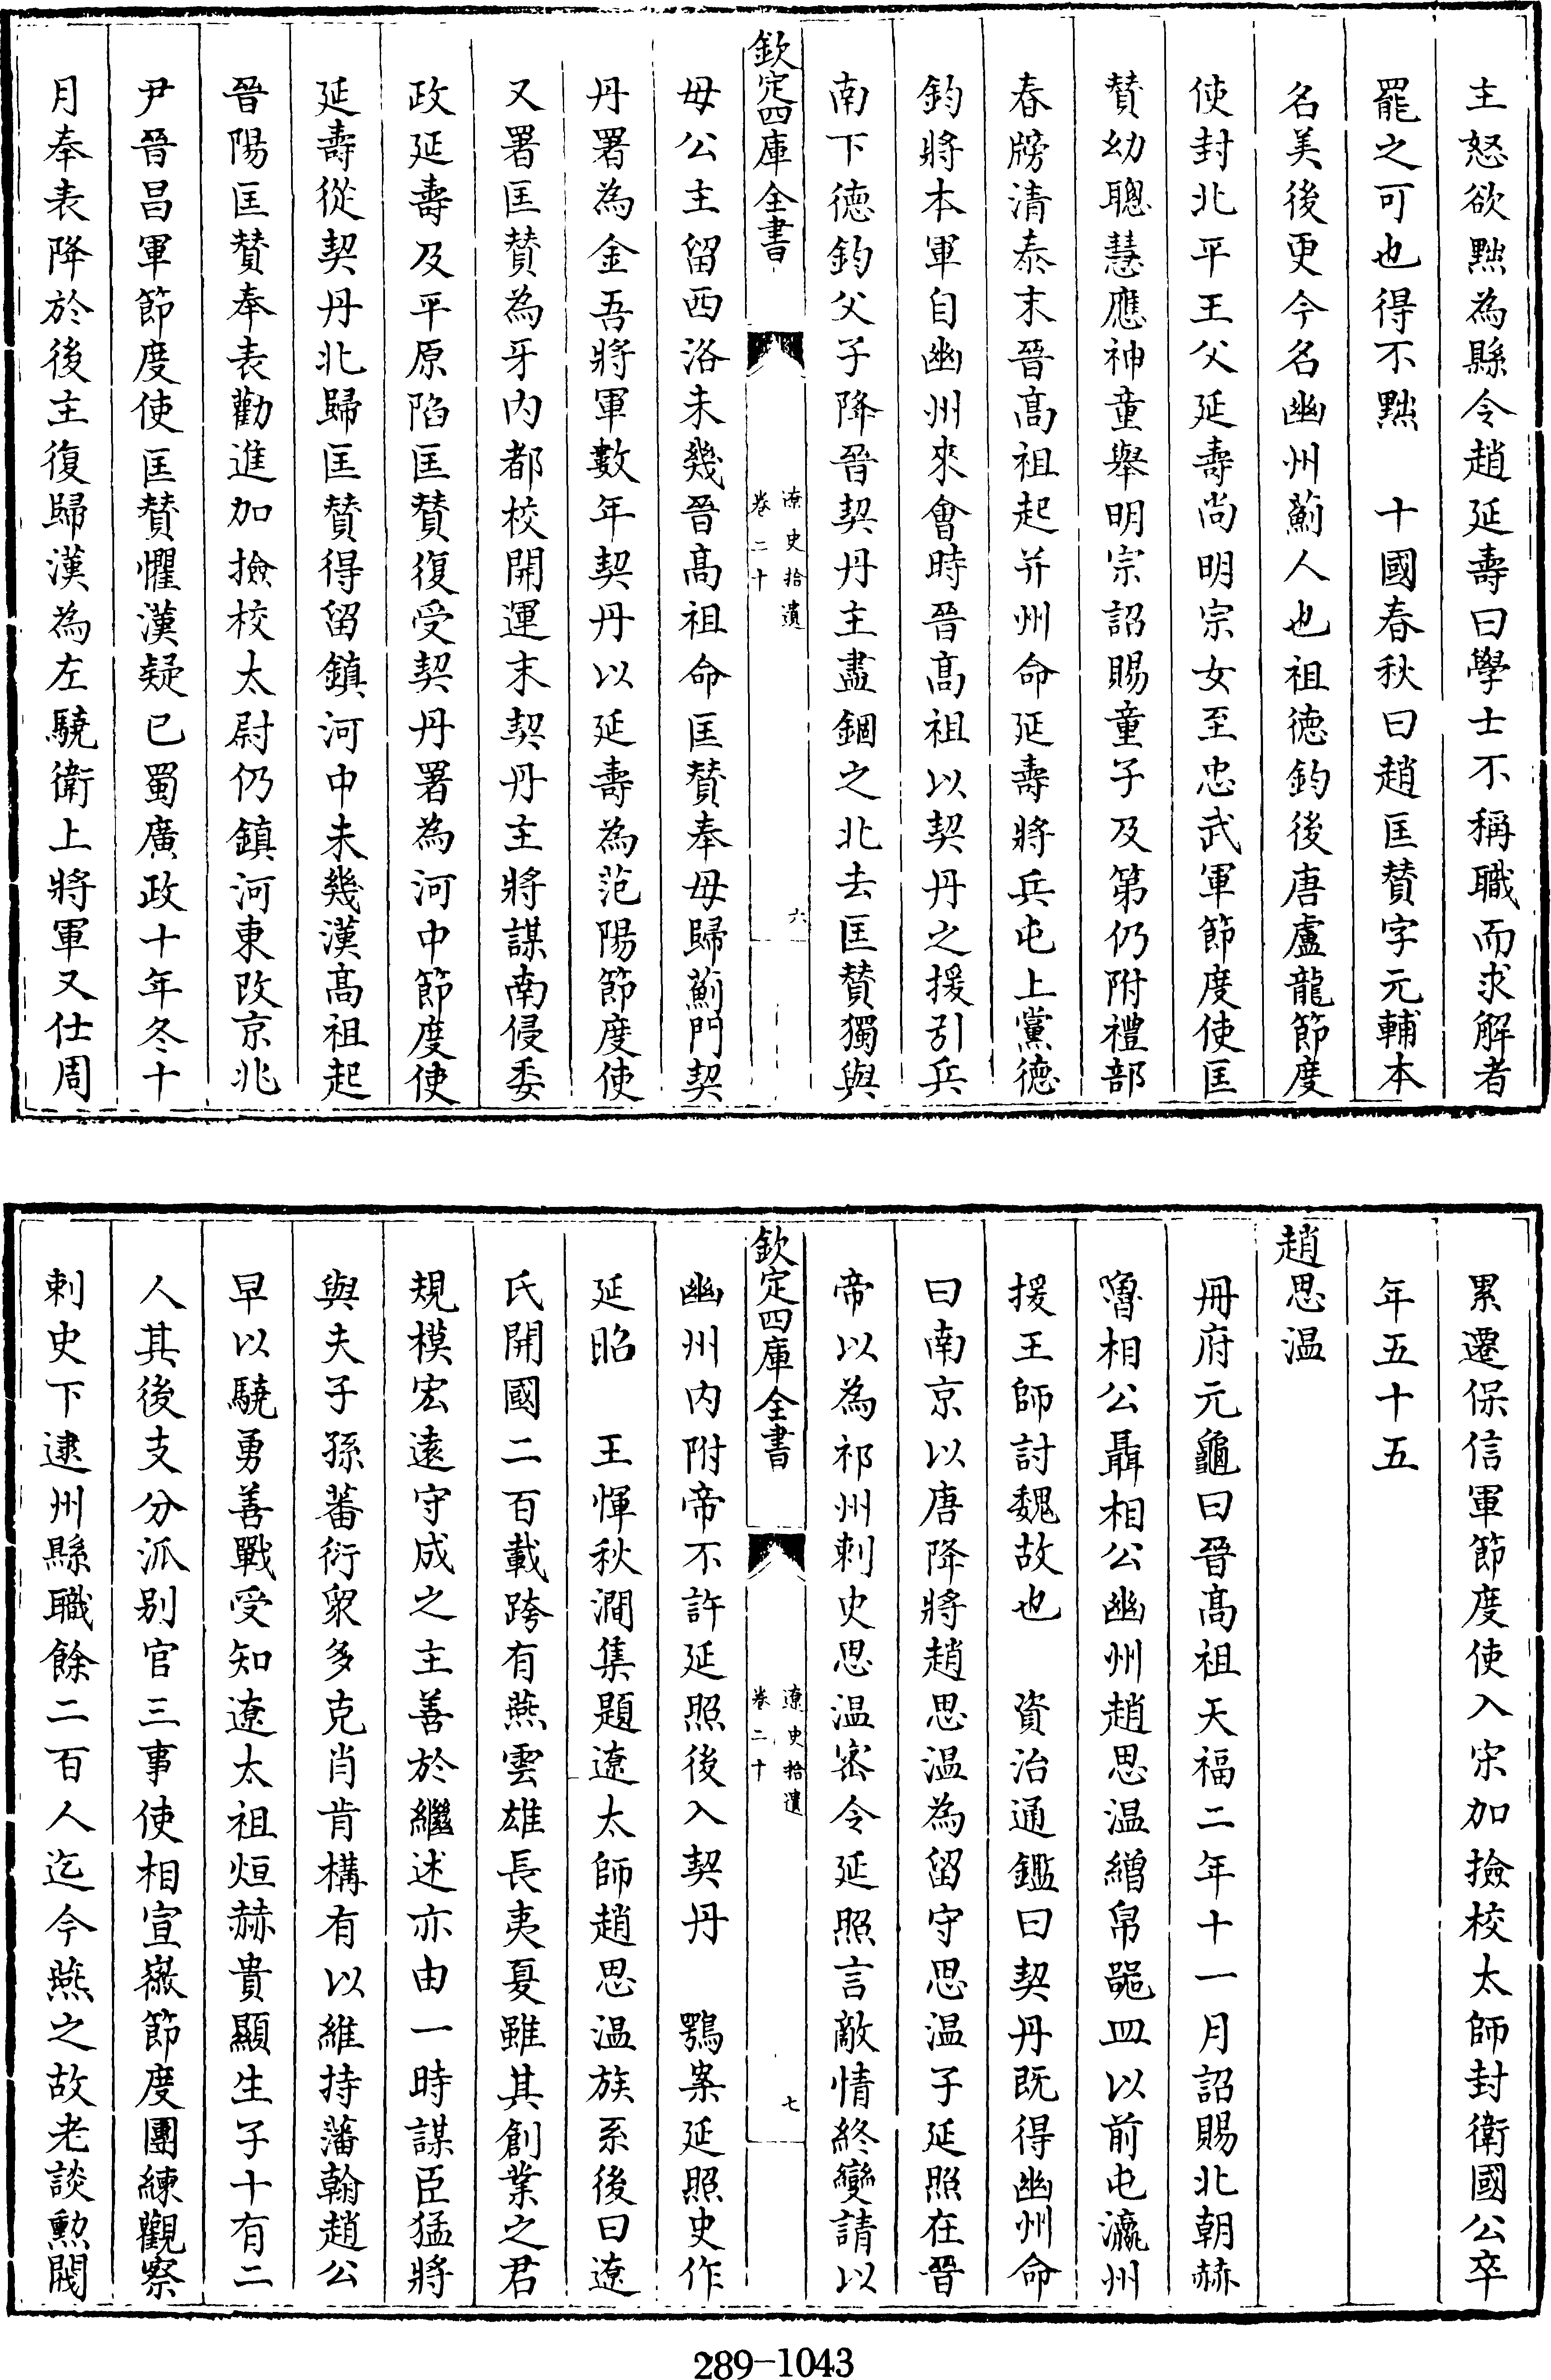 主怒欲黜為縣令趙延壽曰學士不稱職而求解者
罷之可也得不黜　十國春秋曰趙匡贊字元輔本
名美後更今名幽州薊人也祖徳鈞後唐盧龍節度
使封北平王父延壽尚明宗女至忠武軍節度使匡
贊幼聰慧應神童舉明宗詔賜童子及第仍附禮部
春牓清泰末晉髙祖起并州命延壽將兵屯上黨徳
鈞將本軍自幽州來會時晉髙祖以契丹之援引兵
南下徳鈞父子降晉契丹主盡錮之北去匡贊獨與
欽定四庫全書
遼史拾遺
卷二十
六
母公主留西洛未幾晉髙祖命匡贊奉母歸薊門契
丹署為金吾將軍數年契丹以延壽為范陽節度使
又署匡贊為牙內都校開運末契丹主將謀南侵委
政延壽及平原陷匡贊復受契丹署為河中節度使
延壽從契丹北歸匡贊得留鎮河中未幾漢髙祖起
晉陽匡贊奉表勸進加撿校太尉仍鎮河東改京兆
尹晉昌軍節度使匡贊懼漢疑已蜀廣政十年冬十
月奉表降於後主復歸漢為左驍衛上將軍又仕周
累遷保信軍節度使入宋加撿校太師封衛國公卒
年五十五
趙思温
冊府元龜曰晉髙祖天福二年十一月詔賜北朝赫
嚕相公聶相公幽州趙思温繒帛噐皿以前屯瀛州
援王師討魏故也　資治通鑑曰契丹既得幽州命
曰南京以唐降將趙思温為留守思温子延照在晉
帝以為祁州刺史思温宻令延照言敵情終變請以
欽定四庫全書
遼史拾遺
卷二十
七
幽州内附帝不許延照後入契丹　鶚案延照史作
延昭　王惲秋澗集題遼太師趙思温族系後曰遼
氏開國二百載跨有燕雲雄長夷夏雖其創業之君
規模宏逺守成之主善於繼述亦由一時謀臣猛將
與夫子孫蕃衍衆多克肖肯構有以維持藩翰趙公
早以驍勇善戰受知遼太祖烜赫貴顯生子十有二
人其後支分派别官三事使相宣徽節度團練觀察
刺史下逮州縣職餘二百人迄今燕之故老談勲閥
289-1043